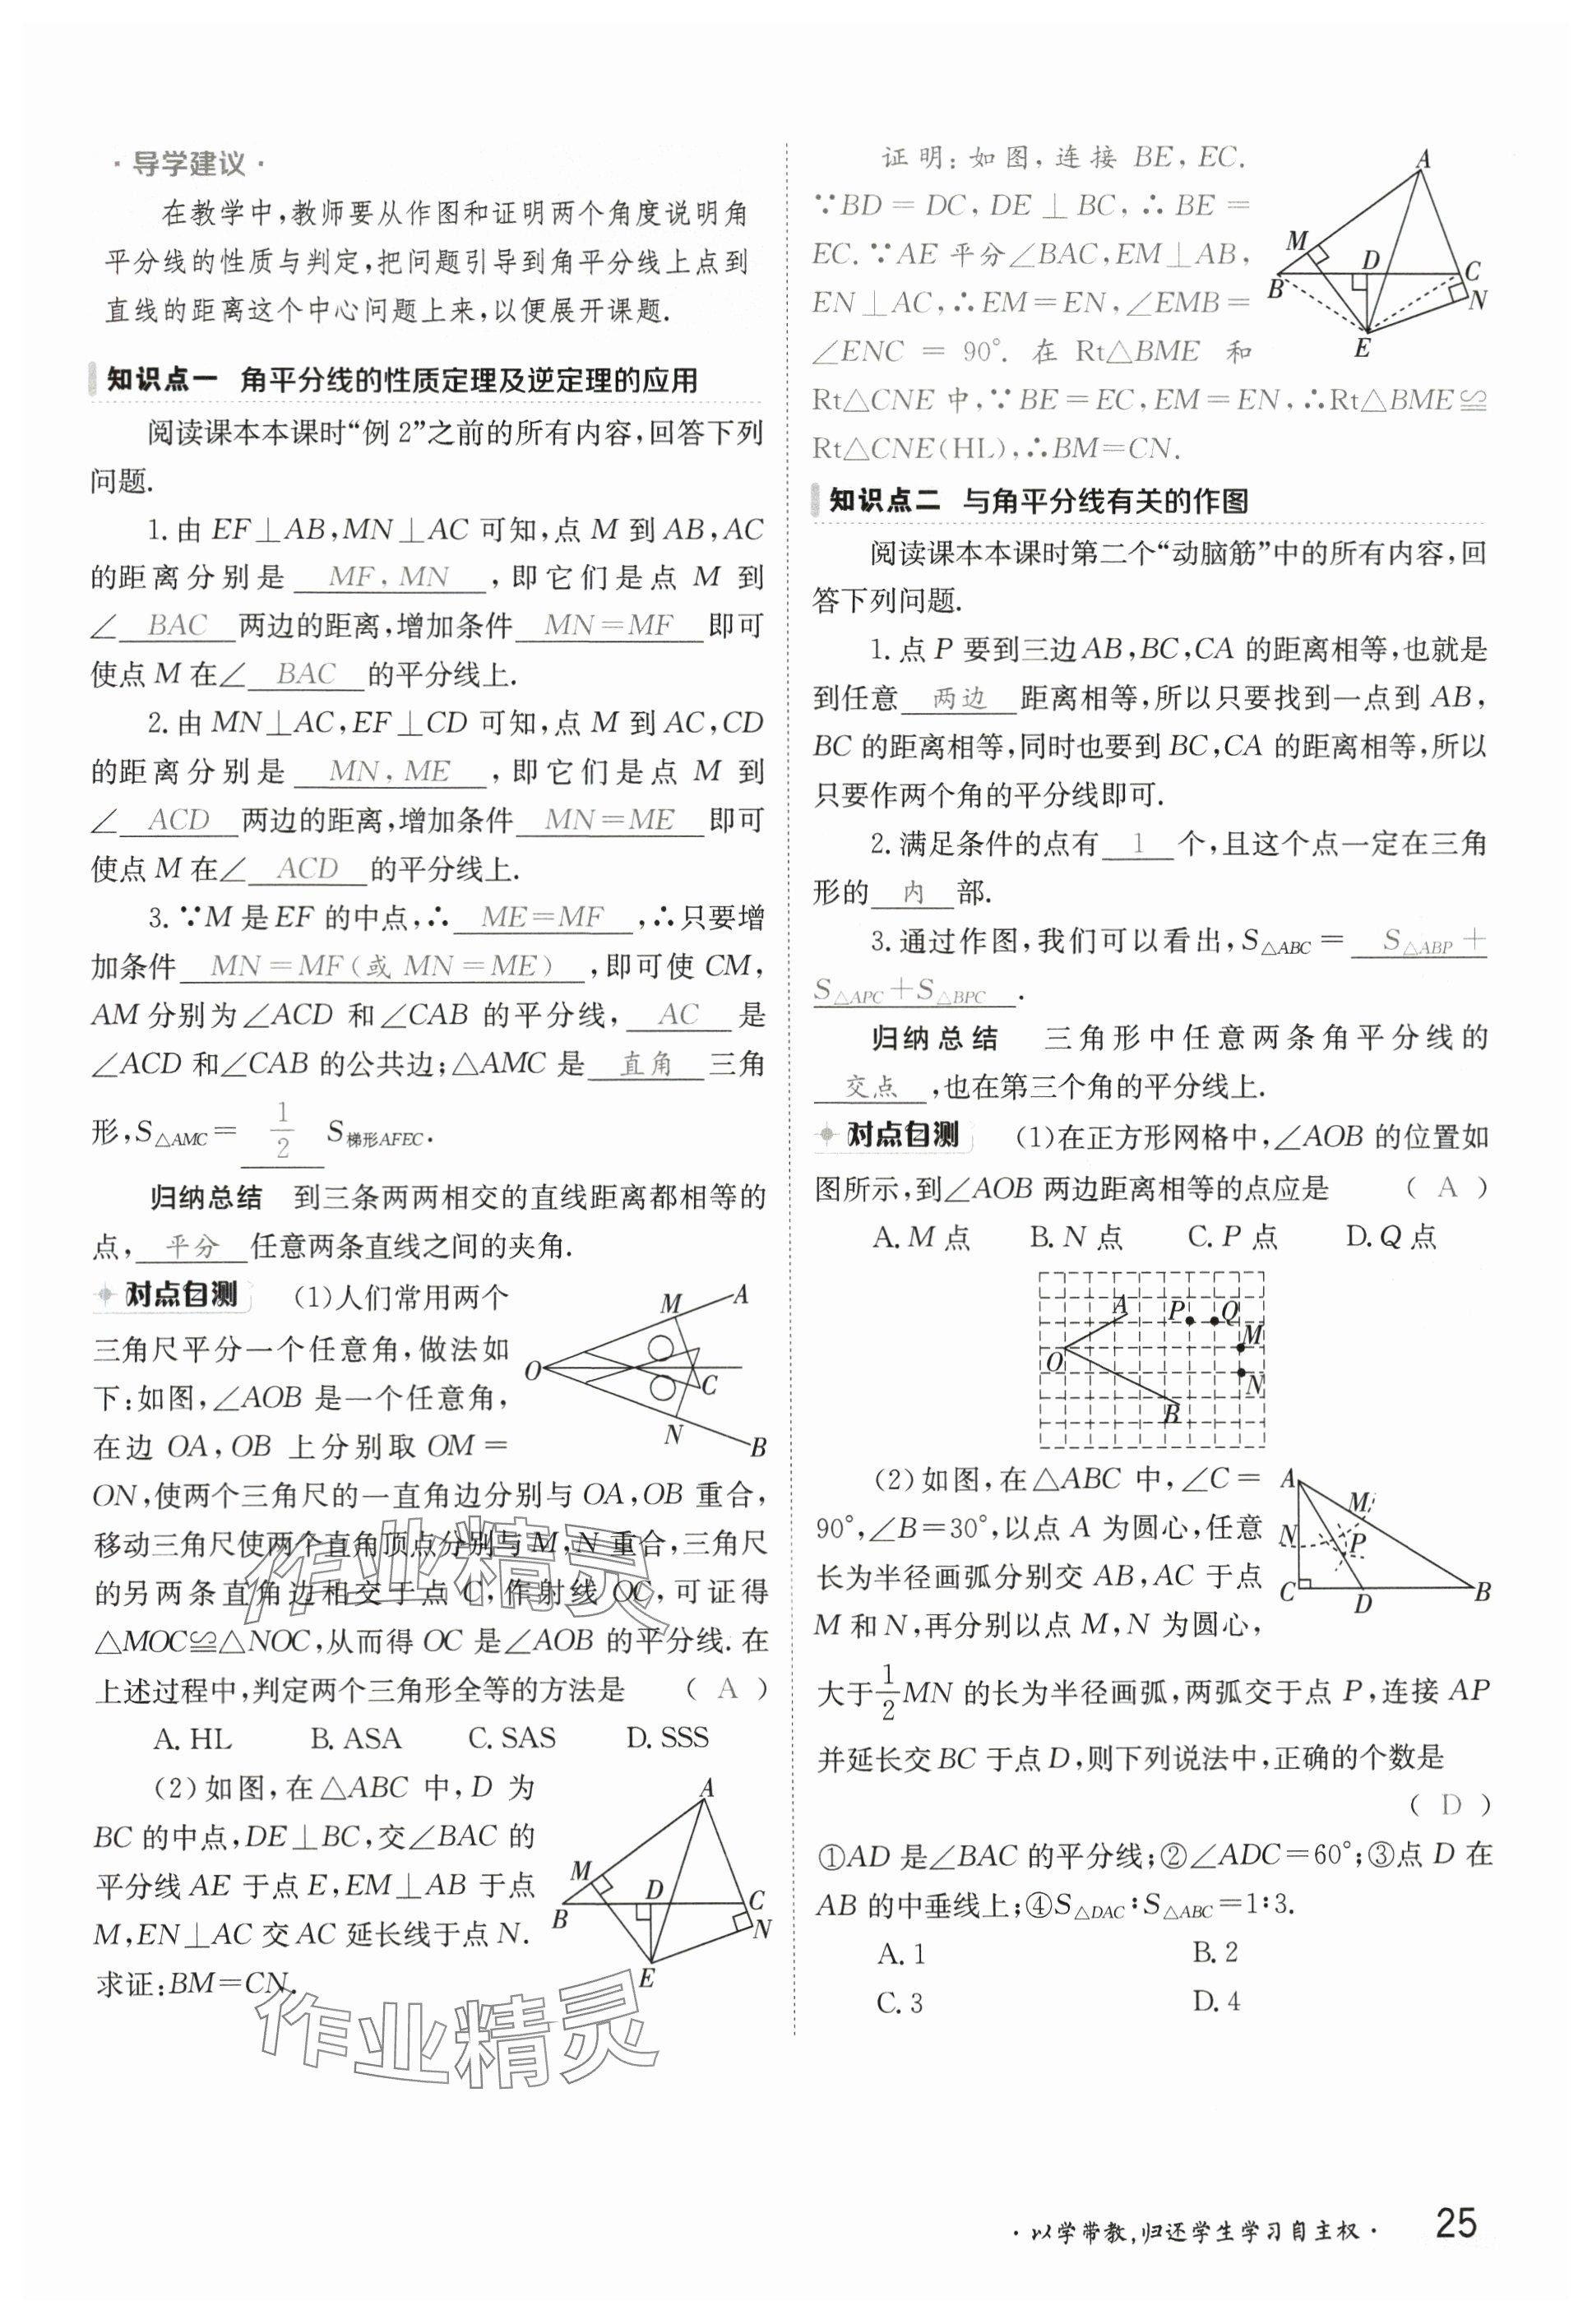 ·导学建议·
在教学中,教师要从作图和证明两个角度说明角
平分线的性质与判定,把问题引导到角平分线上点到
直线的距离这个中心问题上来,以便展开课题.
知识点一 角平分线的性质定理及逆定理的应用
阅读课本本课时“例2”之前的所有内容,回答下列
问题.
1.由 EF⊥AB,MN⊥AC 可知,点 M 到 AB,AC
的距离分别是 MF,MN ,即它们是点 M 到
∠ BAC 两边的距离,增加条件 MN=MF 即可
使点 M 在∠ BAC 的平分线上.
2.由 MN⊥AC,EF⊥CD 可知,点 M 到 AC,CD
的距离分别是 MN,ME ,即它们是点 M 到
∠ ACD 两边的距离,增加条件 MN=ME 即可
使点 M 在∠ ACD 的平分线上.
3.∵M 是 EF 的中点,∴ ME=MF ,∴只要增
加条件 MN=MF(或 MN=ME) ,即可使 CM,
AM 分别为∠ACD 和∠CAB 的平分线, AC 是
∠ACD 和∠CAB 的公共边;△AMC 是 直角 三角
形,S△AMC= 1/2 S梯形AFEC.
归纳总结 到三条两两相交的直线距离都相等的
点, 平分 任意两条直线之间的夹角.
对点自测 (1)人们常用两个
三角尺平分一个任意角,做法如
下:如图,∠AOB 是一个任意角,
在边 OA,OB 上分别取 OM=
ON,使两个三角尺的一直角边分别与 OA,OB 重合,
移动三角尺使两个直角顶点分别与 M,N 重合,三角尺
的另两条直角边相交于点 C,作射线 OC,可证得
△MOC≌△NOC,从而得 OC 是∠AOB 的平分线.在
上述过程中,判定两个三角形全等的方法是 ( A )
A. HL B. ASA C. SAS D. SSS
M A
O
C
N
B
(2)如图,在△ABC 中,D 为
BC 的中点,DE⊥BC,交∠BAC 的
平分线 AE 于点 E,EM⊥AB 于点
M,EN⊥AC 交 AC 延长线于点 N.
求证:BM=CN.
A
M
D
C
B
N
E
作业精灵
作业精灵
证明:如图,连接 BE,EC.
∵BD=DC,DE⊥BC,∴BE=
EC.∵AE 平分∠BAC,EM⊥AB,
EN⊥AC,∴EM=EN,∠EMB=
∠ENC = 90°. 在 Rt△BME 和
Rt△CNE 中,∵BE=EC,EM=EN,∴Rt△BME≌
Rt△CNE(HL),∴BM=CN.
A
M
D
C
B
N
E
知识点二 与角平分线有关的作图
阅读课本本课时第二个“动脑筋”中的所有内容,回
答下列问题.
1.点 P 要到三边 AB,BC,CA 的距离相等,也就是
到任意 两边 距离相等,所以只要找到一点到 AB,
BC 的距离相等,同时也要到 BC,CA 的距离相等,所以
只要作两个角的平分线即可.
2.满足条件的点有 1 个,且这个点一定在三角
形的 内 部.
3.通过作图,我们可以看出,S△ABC= S△ABP+
S△APC+S△BPC .
归纳总结 三角形中任意两条角平分线的
交点 ,也在第三个角的平分线上.
对点自测 (1)在正方形网格中,∠AOB 的位置如
图所示,到∠AOB 两边距离相等的点应是 ( A )
A. M 点 B. N 点 C. P 点 D. Q 点
A P Q
M
O
N
B
(2)如图,在△ABC 中,∠C=
90°,∠B=30°,以点 A 为圆心,任意
长为半径画弧分别交 AB,AC 于点
M 和 N,再分别以点 M,N 为圆心,
大于1/2MN 的长为半径画弧,两弧交于点 P,连接 AP
并延长交 BC 于点 D,则下列说法中,正确的个数是
( D )
A
M
N
P
C
D
B
①AD 是∠BAC 的平分线;②∠ADC=60°;③点 D 在
AB 的中垂线上;④S△DAC∶S△ABC=1∶3.
A. 1 B. 2
C. 3 D. 4
·以学带教,归还学生学习自主权· 25